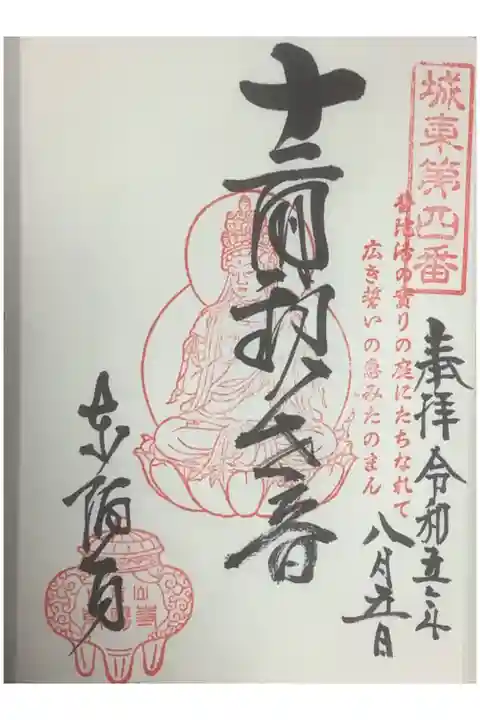 城東第四番
奉拝 令和五年
八月五日
の實りの庭にたちなれて
広き誓いの恵みたのまん
十一面観世音